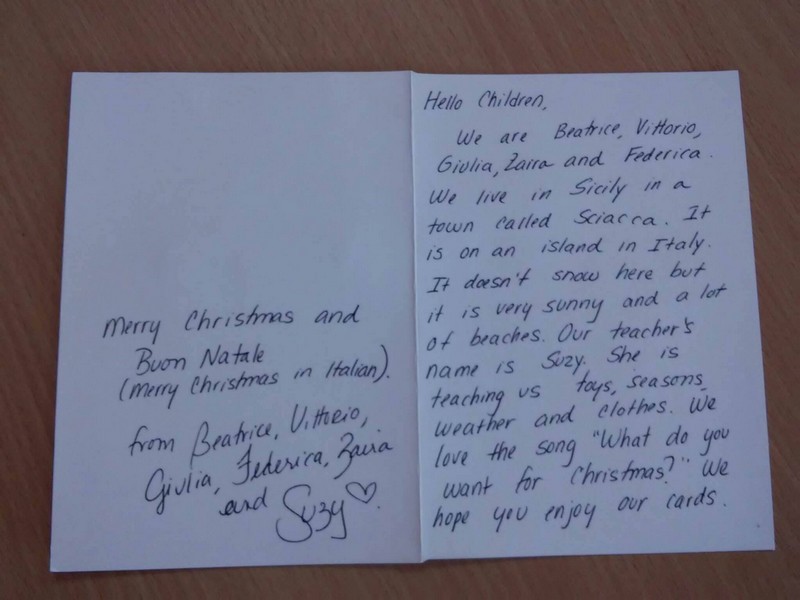 Merry Christmas and
Buon Natale
(Merry Christmas in Italian).
from Beatrice, Vittorio,
Giulia, Federica, Zaira
and Suzy ♡.
Hello Children,
We are Beatrice, Vittorio,
Giulia, Zaira and Federica.
We live in Sicily in a
town called Sciacca. It
is on an island in Italy.
It doesn't snow here but
it is very sunny and a lot
of beaches. Our teacher's
name is Suzy. She is
teaching us toys, seasons,
weather and clothes. We
love the song "What do you
want for Christmas?" We
hope you enjoy our cards.